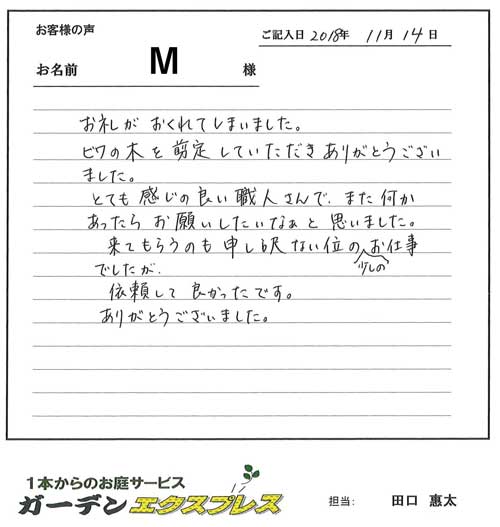 お客様の声
ご記入日 2018年 11月 14日
お名前 M 様
お礼が おくれてしまいました。
ビワの木を剪定していただきありがとうござい
ました。
とても感じの良い職人さんで、また何か
あったら お願いしたいなぁと思いました。
来てもらうのも申し訳ない位の少しのお仕事
でしたが、
依頼して良かったです。
ありがとうございました。
1本からのお庭サービス
ガーデンエクスプレス
担当: 田口 惠太